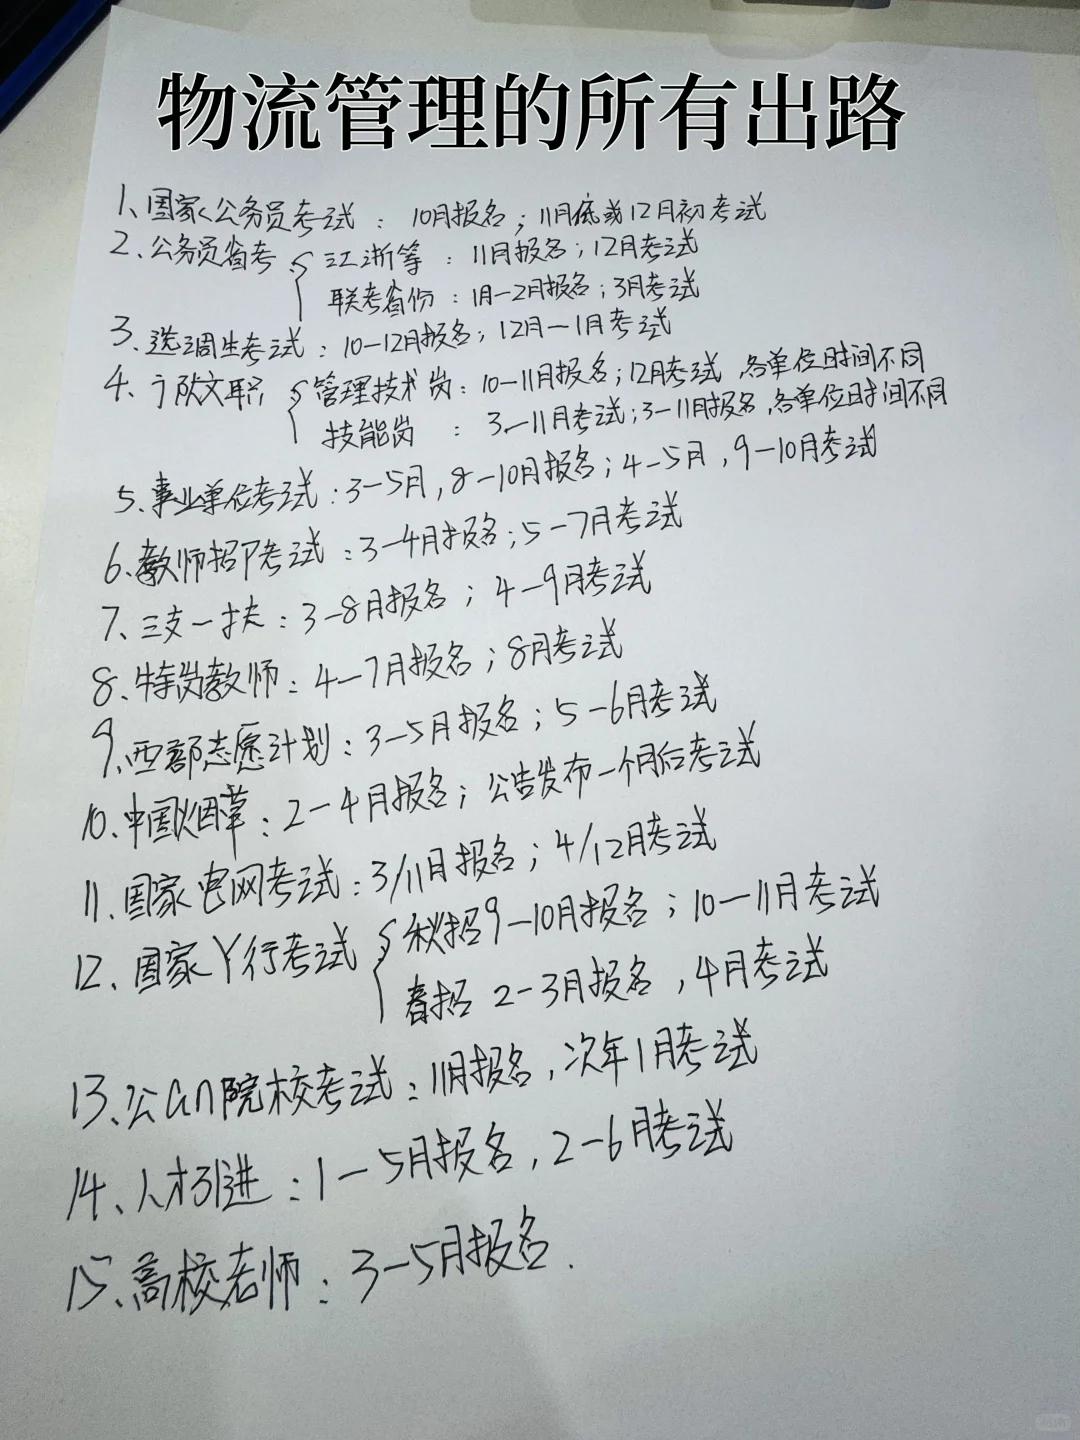 物流管理的所有出路
1、国家公务员考试：10月报名；11月底或12月初考试
2、公务员省考
江浙等：11月报名；12月考试
联考省份：1月-2月报名；3月考试
3、选调生考试：10-12月报名；12月-1月考试
4、亍队文职
管理技术岗：10-11月报名；12月考试，各单位时间不同
技能岗：3-11月考试；3-11月报名，各单位时间不同
5、事业单位考试：3-5月，8-10月报名；4-5月，9-10月考试
6、教师招P考试：3-4月报名；5-7月考试
7、三支一扶：3-8月报名；4-9月考试
8、特岗教师：4-7月报名；8月考试
9、西部志愿计划：3-5月报名；5-6月考试
10、中国烟草：2-4月报名；公告发布一个月后考试
11、国家电网考试：3/11月报名；4/12月考试
12、国家Y行考试
秋招9-10月报名；10-11月考试
春招 2-3月报名，4月考试
13、公an院校考试：11月报名，次年1月考试
14、人才引进：1-5月报名，2-6月考试
15、高校老师：3-5月报名.